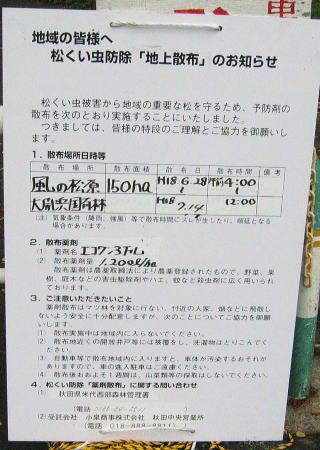 地域の皆様へ
松くい虫防除「地上散布」のお知らせ
松くい虫被害から地域の重要な松を守るため、予防剤の
散布を次のとおり実施することにいたしました。
つきましては、皆様の特段のご理解とご協力を御願い
します。
1．散布場所日時等
散布場所 散布面積 散布日 散布時間 備考
風の松原 150ha H18.6.28 午前4:00
国有林 7.14 12:00
(注) 気象条件（降雨、強風）等で散布時間にズレが生じたり、順延となる
場合があります。
2．散布薬剤
(1) 薬剤名
(2) 散布薬剤量 1,200ℓ/ha
散布薬剤は農薬取締法により農薬登録されたもので、野菜、果
樹、庭木などの害虫駆除剤やハエ、蚊など殺虫剤に広く用いられ
ております。
3．ご注意いただきたいこと
薬剤散布はマツ林を対象に行ない、付近の人家、畑などに飛散し
ないよう安全に十分配慮しますが、次のことについてご協力を御願
いします。
(1) 散布実施中は地域内に入らないでください。
(2) 散布地近くの開放井戸等には被覆をし、洗濯物はとりこんでく
ださい。
(3) 自動車等で散布地域内に入りますと、車体が汚染するおそれが
ありますので、車の進入駐車はご遠慮ください。
(4) 散布後おおよそ1週間は、山菜類等の採取はしないでください。
4．松くい防除「薬剤散布」に関する問い合わせ
(1) 秋田県米代西部森林管理署
(電話
(2) 受託会社 小泉商事株式会社 秋田中央営業所
(電話 018-888-8811)